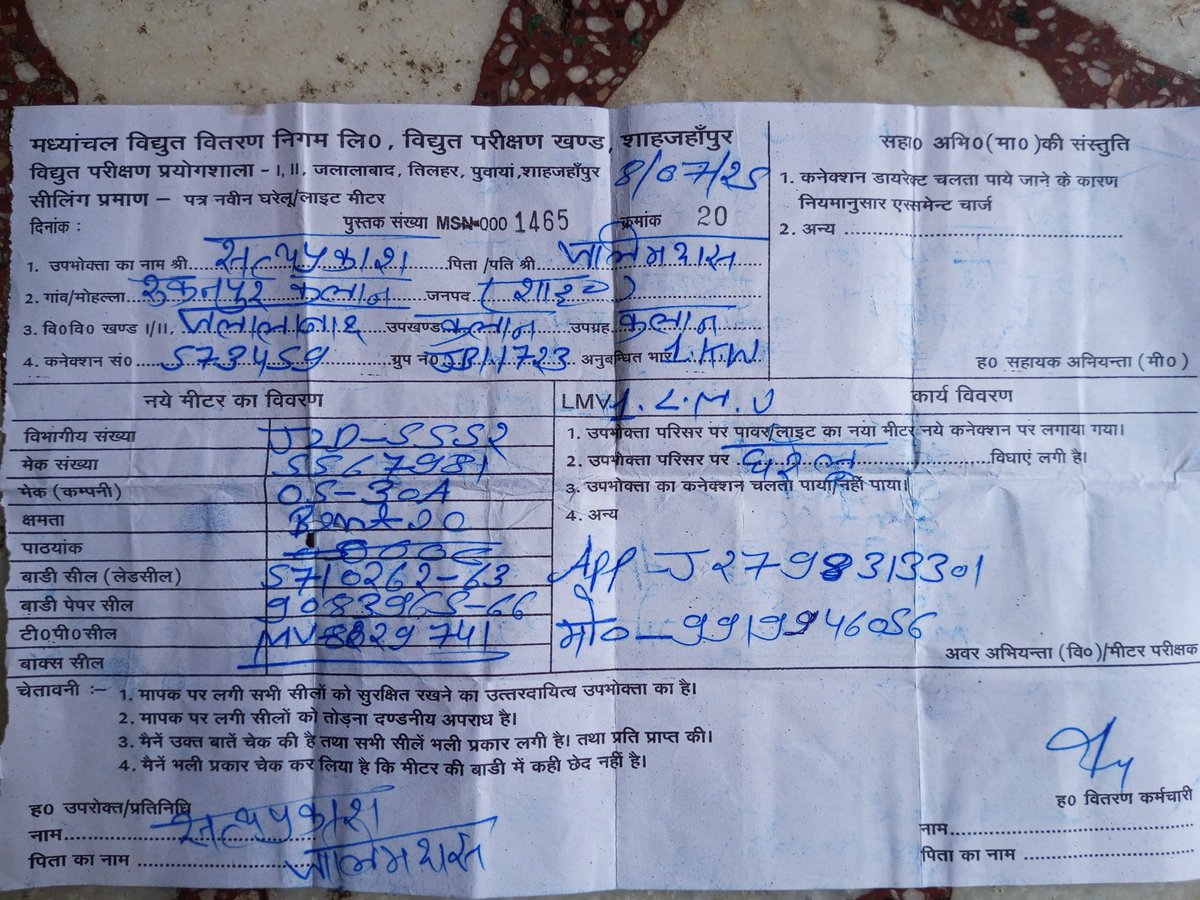 मध्यांचल विद्युत वितरण निगम लि०, विद्युत परीक्षण खण्ड, शाहजहाँपुर
विद्युत परीक्षण प्रयोगशाला - I, II, जलालाबाद, तिलहर, पुवायां,शाहजहाँपुर 8/07/25
सीलिंग प्रमाण – पत्र नवीन घरेलू/लाइट मीटर
दिनांक : पुस्तक संख्या MSN-000 1465 क्रमांक 20
1. उपभोक्ता का नाम श्री सत्यप्रकाश पिता /पति श्री
2. गांव/मोहल्ला कलान जनपद (शाह०)
3. वि०वि० खण्ड I/II, उपखण्ड कलान उपग्रह कलान
4. कनेक्शन सं० 573459 ग्रुप नं० JB11723 अनुबन्धित भार 1.KW
सहा० अभि०(मा०)की संस्तुति
1. कनेक्शन डायरेक्ट चलता पाये जाने के कारण
नियमानुसार एस्समेन्ट चार्ज
2. अन्य
ह० सहायक अभियन्ता (मी०)
नये मीटर का विवरण
विभागीय संख्या
मेक संख्या 5567981
मेक (कम्पनी) 05-30A
क्षमता
पाठयांक
बाडी सील (लेडसील) 5710262-63
बाडी पेपर सील 9083965-66
टी०पी०सील
बांक्स सील
LMV कार्य विवरण
1. उपभोक्ता परिसर पर पावर/लाइट का नया मीटर नये कनेक्शन पर लगाया गया।
2. उपभोक्ता परिसर पर घरेलू विधाएं लगी है।
3. उपभोक्ता का कनेक्शन चलता पाया/नहीं पाया।
4. अन्य
App - J2798313301
मो० - 9919946056
अवर अभियन्ता (वि०)/मीटर परीक्षक
चेतावनी :– 1. मापक पर लगी सभी सीलों को सुरक्षित रखने का उत्तरदायित्व उपभोक्ता का है।
2. मापक पर लगी सीलों को तोड़ना दण्डनीय अपराध है।
3. मैनें उक्त बातें चेक की है तथा सभी सीलें भली प्रकार लगी है। तथा प्रति प्राप्त की।
4. मैनें भली प्रकार चेक कर लिया है कि मीटर की बाडी में कही छेद नहीं है।
ह० उपरोक्त/प्रतिनिधि
नाम सत्यप्रकाश
पिता का नाम
ह० वितरण कर्मचारी
नाम
पिता का नाम